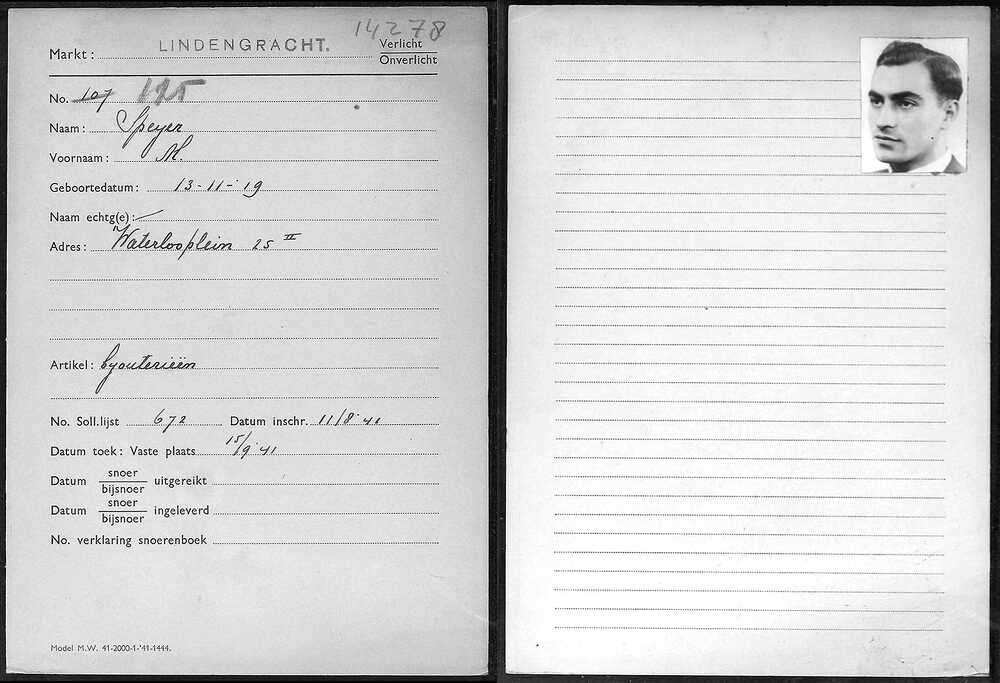 14278
Markt: LINDENGRACHT. Verlicht
Onverlicht
No. 107 195
Naam: Speyer
Voornaam: M.
Geboortedatum: 13-11-'19
Naam echtg(e): —
Adres: Waterlooplein 25 II
Artikel: byouterieën
No. Soll.lijst 672 Datum inschr. 11/8 '41
Datum toek: Vaste plaats 15/9 '41
Datum snoer
bijsnoer uitgereikt
Datum snoer
bijsnoer ingeleverd
No. verklaring snoerenboek
Model M.W. 41-2000-1-'41-1444.